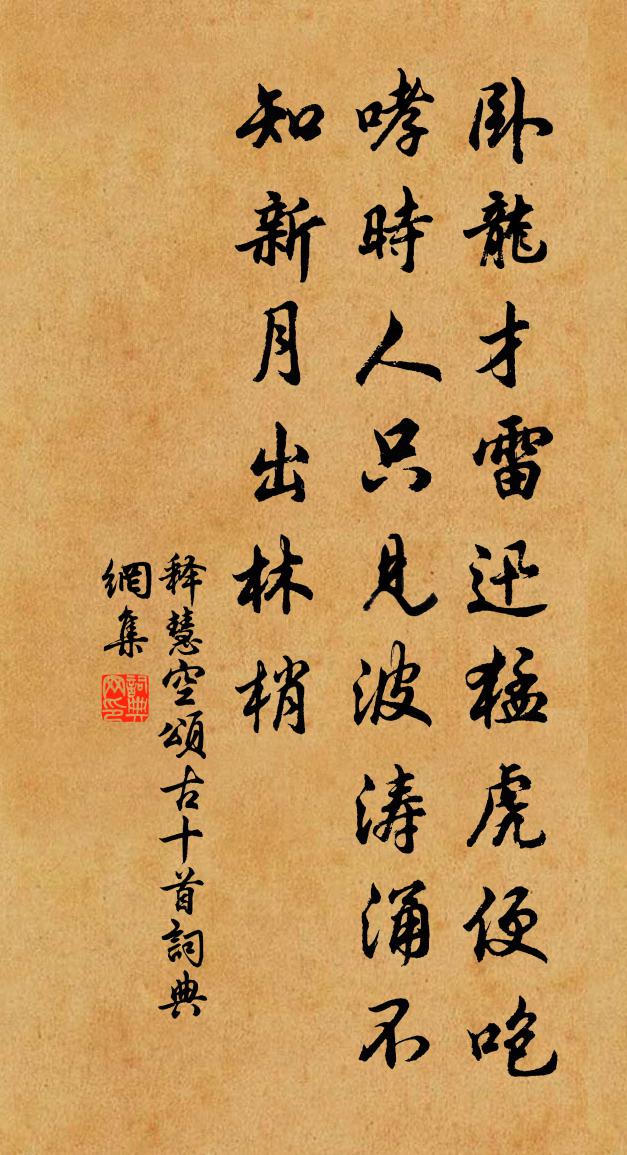 卧龍才雷迅猛虎便咆
哮時人只見波涛涌不
知新月出林梢
释慧空頌古十首詞典
網集
詞典
网印